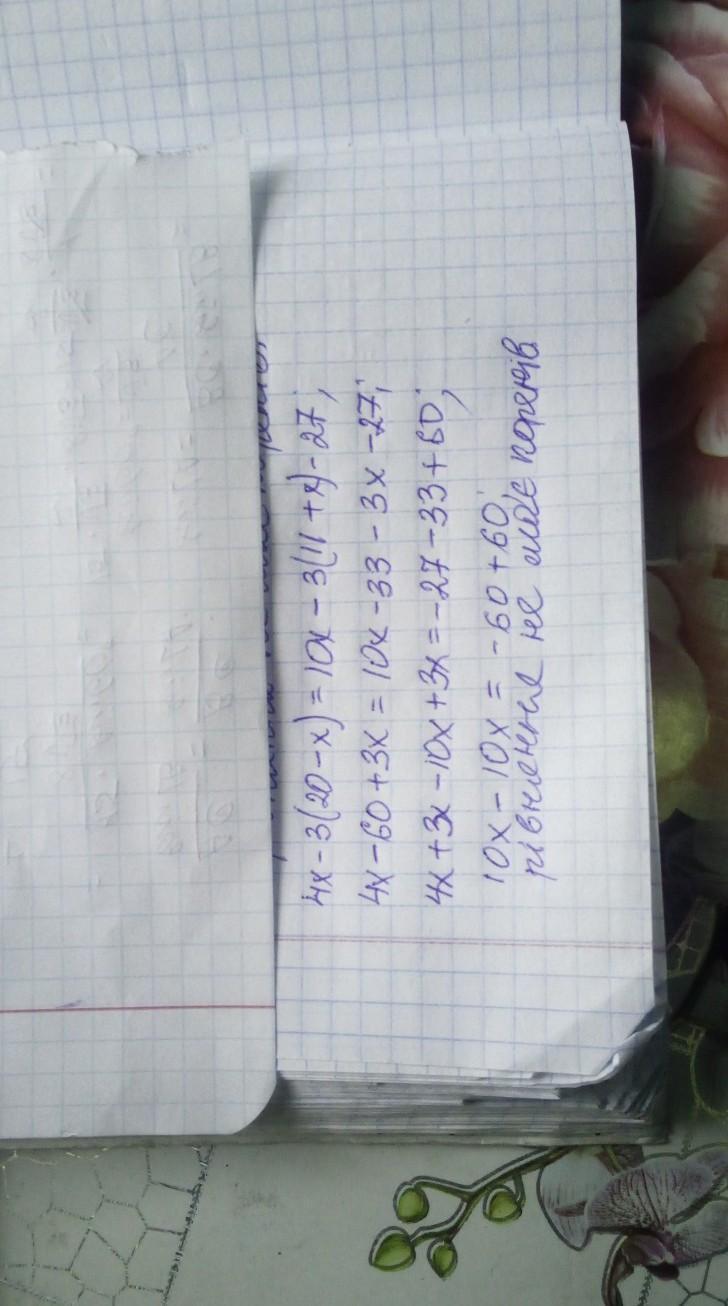 4x-3(20-x)=10x-3(11+x)-27;
4x-60+3x=10x-33-3x-27;
4x+3x-10x+3x=-27-33+60;
10x-10x=-60+60;
рівняння не має коренів